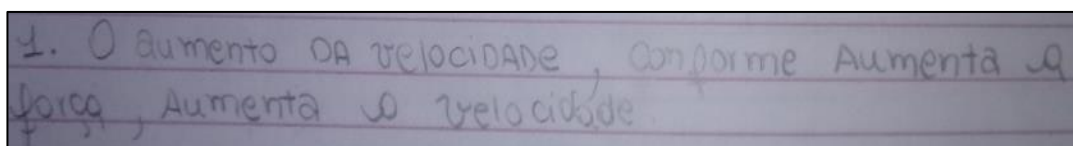 1. O aumento DA velociDADe, conforme Aumenta a
força, Aumenta a velocidade.